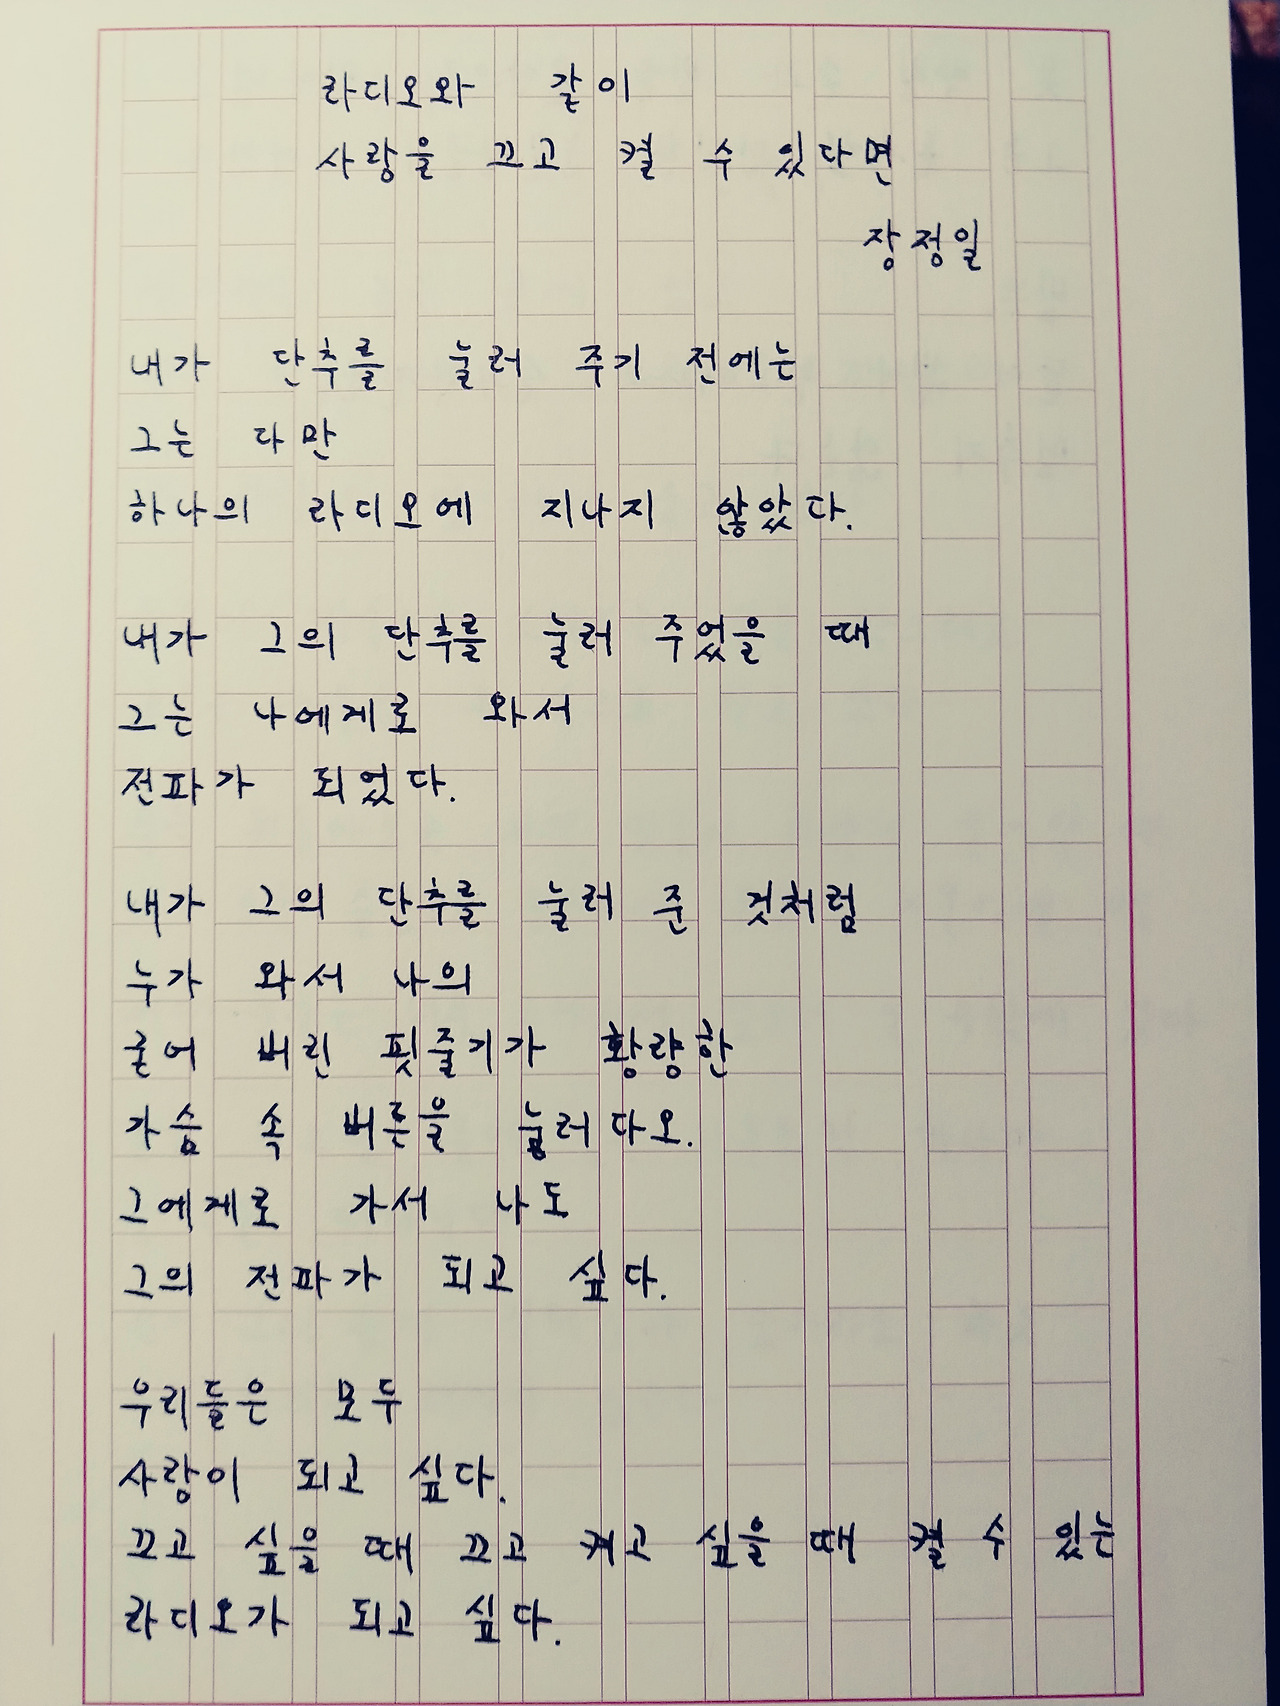 라디오와 같이
사랑을 끄고 켤 수 있다면
장정일
내가 단추를 눌러 주기 전에는
그는 다만
하나의 라디오에 지나지 않았다.
내가 그의 단추를 눌러 주었을 때
그는 나에게로 와서
전파가 되었다.
내가 그의 단추를 눌러 준 것처럼
누가 와서 나의
굳어 버린 핏줄기가 황량한
가슴 속 버튼을 눌러다오.
그에게로 가서 나도
그의 전파가 되고 싶다.
우리들은 모두
사랑이 되고 싶다.
끄고 싶을 때 끄고 켜고 싶을 때 켤 수 있는
라디오가 되고 싶다.